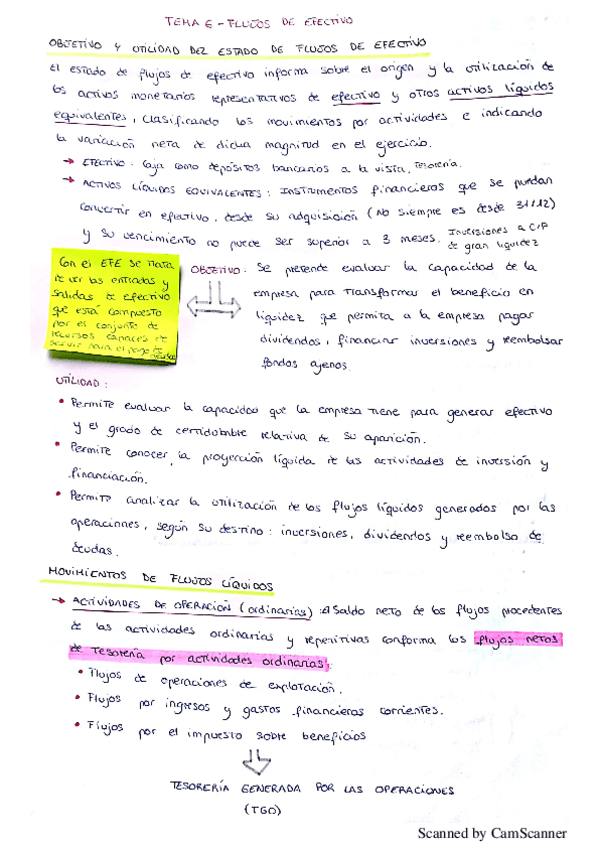 TEMA 6 - FLUJOS DE EFECTIVO
OBJETIVO Y UTILIDAD DEL ESTADO DE FLUJOS DE EFECTIVO
El estado de flujos de efectivo informa sobre el origen y la utilización de
los activos monetarios representativos de efectivo y otros activos líquidos
equivalentes, clasificando los movimientos por actividades e indicando
la variación neta de dicha magnitud en el ejercicio.
→ EFECTIVO: Caja como depósitos bancarios a la vista, Tesorería.
→ ACTIVOS LÍQUIDOS EQUIVALENTES: Instrumentos financieros que se puedan
convertir en efectivo, desde su adquisición (No siempre es desde 31/12)
y su vencimiento no puede ser superior a 3 meses. Inversiones a C/P
de gran liquidez
Con el EFE se trata
de ver las entradas y
salidas de efectivo
que está compuesto
por el conjunto de
recursos capaces de
servir para el pago de
deudas
OBJETIVO: Se pretende evaluar la capacidad de la
empresa para transformar el beneficio en
liquidez que permita a la empresa pagar
dividendos, financiar inversiones y reembolsar
fondos ajenos.
UTILIDAD:
• Permite evaluar la capacidad que la empresa tiene para generar efectivo
y el grado de certidumbre relativa de su aparición.
• Permite conocer la proyección líquida de las actividades de inversión y
financiación.
• Permite analizar la utilización de los flujos líquidos generados por las
operaciones, según su destino: inversiones, dividendos y reembolso de
deudas.
MOVIMIENTOS DE FLUJOS LÍQUIDOS
→ ACTIVIDADES DE OPERACIÓN (ordinarias): el saldo neto de los flujos procedentes
de las actividades ordinarias y repetitivas conforma los flujos netos
de tesorería por actividades ordinarias:
• Flujos de operaciones de explotación.
• Flujos por ingresos y gastos financieros corrientes.
• Flujos por el impuesto sobre beneficios
TESORERÍA GENERADA POR LAS OPERACIONES
(TGO)
Scanned by CamScanner